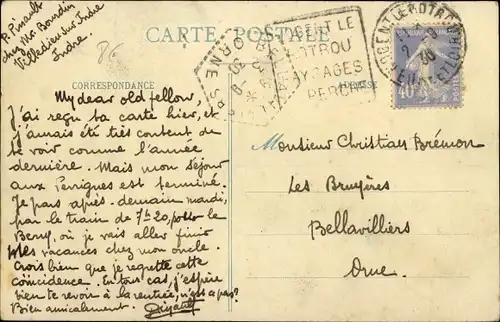 P. Pinault
chez Mr Bourdin
Villedieu sur Indre
Indre.
86
CARTE POSTALE
NOGENT LE
ROTROU
PAYSAGES
PERCHE
NOGENT LE ROTROU
30
EURE ET LOIR
40c
ORNE
CORRESPONDANCE
ADRESSE
My dear old fellow,
J'ai reçu ta carte hier, et
j'aurais été très content de
te voir comme l'année
dernière. Mais mon séjour
aux Perrignes est terminé.
Je pars après-demain mardi,
par le train de 7h20, pour le
Berry, où je vais aller finir
mes vacances chez mon oncle.
Crois bien que je regrette cette
coïncidence. En tous cas, j'espère
bien te revoir à la rentrée, n'est-ce pas?
Bien amicalement.
Monsieur Christian Brémon
Les Bruyères
Bellavilliers
Orne.